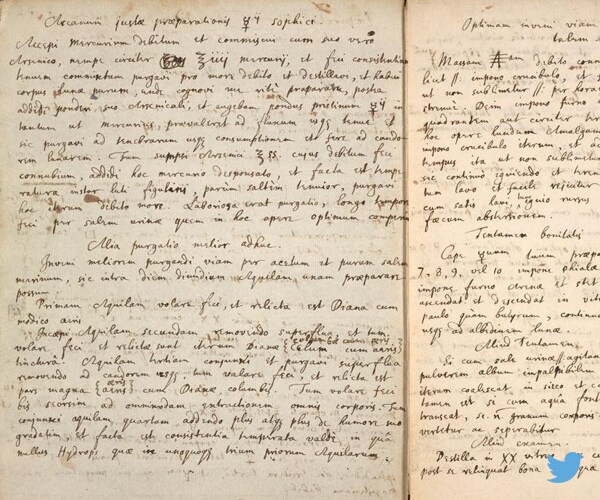 Arcanum justæ præparationis ☿ij sophici.
Accepi mercurium debitum et commiscui cum suo vero
Arsenico, nempe circiter ℥iiij mercurij, et feci consistentiam
tenuem commixtum purgavi pro more debito et destillavi, et habui
corpus Lunæ purum, unde cognovi me rite præparare, postea
addidi ponderi suo Arsenicali, et augebam pondus pristinum ☿ij in
tantum ut mercurius prævalerit ad fluxum usque tenuem et
sic purgavi ad tenebrarum usque consumptionem et fere ad cando-
rem lunarem. Tum sumpsi Arsenici ℥ss. cujus debitum feci
connubium, addidi hoc mercurio desponsato, et facta est tempe-
ratura instar luti figularis, parum saltem tenuior, purgavi
hoc iterum debito more. Laboriosa erat purgatio, longo tempore
feci per salem urinæ quem in hoc opere optimum comperi
Alia purgatio melior adhuc.
Inveni meliorem purgandi viam per acetum et purum salem
marinum, sic intra diem dimidium Aquilam unam præparare
possum
Primam Aquilam volare feci, et relicta est Diana cum
modico æris
Incepi Aquilam secundam removendo superflua, et tum
volare feci et relictæ sunt iterum Dianæ columbæ cum æris
tinctura. Aquilam tertiam conjunxi et purgavi superflua
removendo ad candorem usque tum volare feci, et relicta est
pars magna æris cum Dianæ columbis. Tum volare feci
bis seorsim ad omnimodam extractionem omnis corporis. Tum
conjunxi aquilam quartam addendo plus atque plus de humore suo
gradatim, et facta est consistentia temperata valde, in qua
nullus Hydrops quæ in unaquaque trium priorum Aquilarum
Optimam inveni viam
talem
Massam
debito
licet
impono crucibulo, et
ut non sublimetur
per horam
Dein impono furno
quadrantem aut circiter
hoc opere
Amalgama
impono crucibulo iterum, et
tempus ita ut non sublimetur
sic continuo igniendo et
tum lavo et facile rejicitur
cum satis lavi, ignio rursus
fæcum abstersionem.
Tentamen bonitatis
Cape tuum præpa
7. 8. 9. vel 10 impone phialæ
impone furno arenæ et stet
ascendat et descendat in vit
paulo quam butyrum, continue
usque ad albedinem lunæ.
Aliud Tentamen.
Si cum sale urinæ agitan
pulverem album impalpabilem
iterum coalescat in sicco et
tamen est si cum aqua font
transeat, granum corporis
vertetur ac separabitur
Aliud examen.
Destilla in XX vitreo
post se relinquat bona